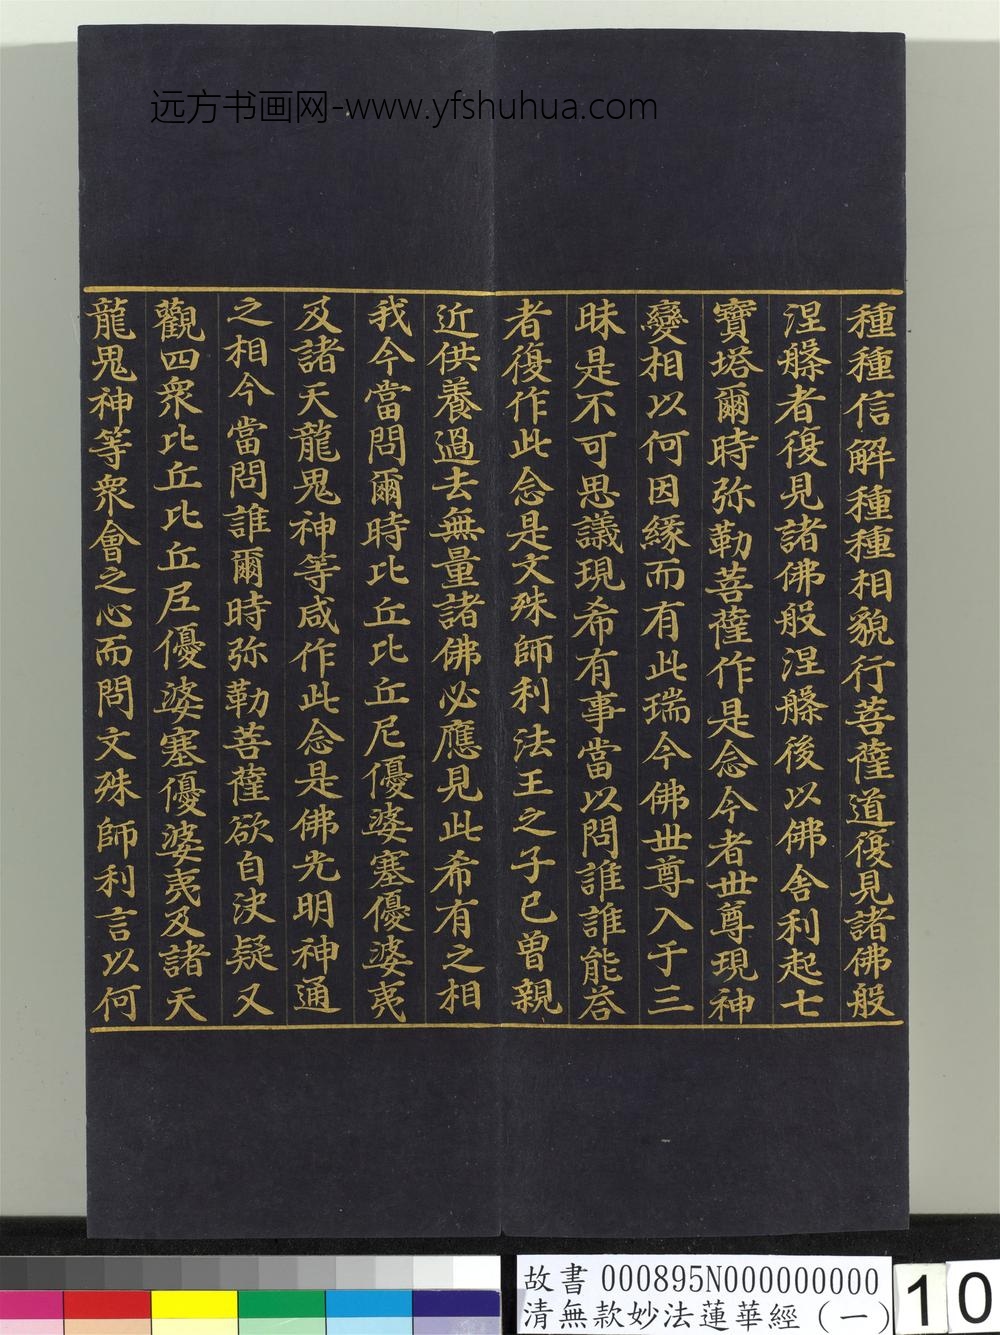 远方书画网-www.yfshuhua.com
種種信解種種相貌行菩薩道復見諸佛般
涅槃者復見諸佛般涅槃後以佛舍利起七
寶塔爾時弥勒菩薩作是念今者世尊現神
變相以何因緣而有此瑞今佛世尊入于三
昧是不可思議現希有事當以問誰誰能荅
者復作此念是文殊師利法王之子已曾親
近供養過去無量諸佛必應見此希有之相
我今當問爾時比丘比丘尼優婆塞優婆夷
及諸天龍鬼神等咸作此念是佛光明神通
之相今當問誰爾時弥勒菩薩欲自決疑又
觀四眾比丘比丘尼優婆塞優婆夷及諸天
龍鬼神等眾會之心而問文殊師利言以何
故書 000895N000000000
清無款妙法蓮華經（一）
10